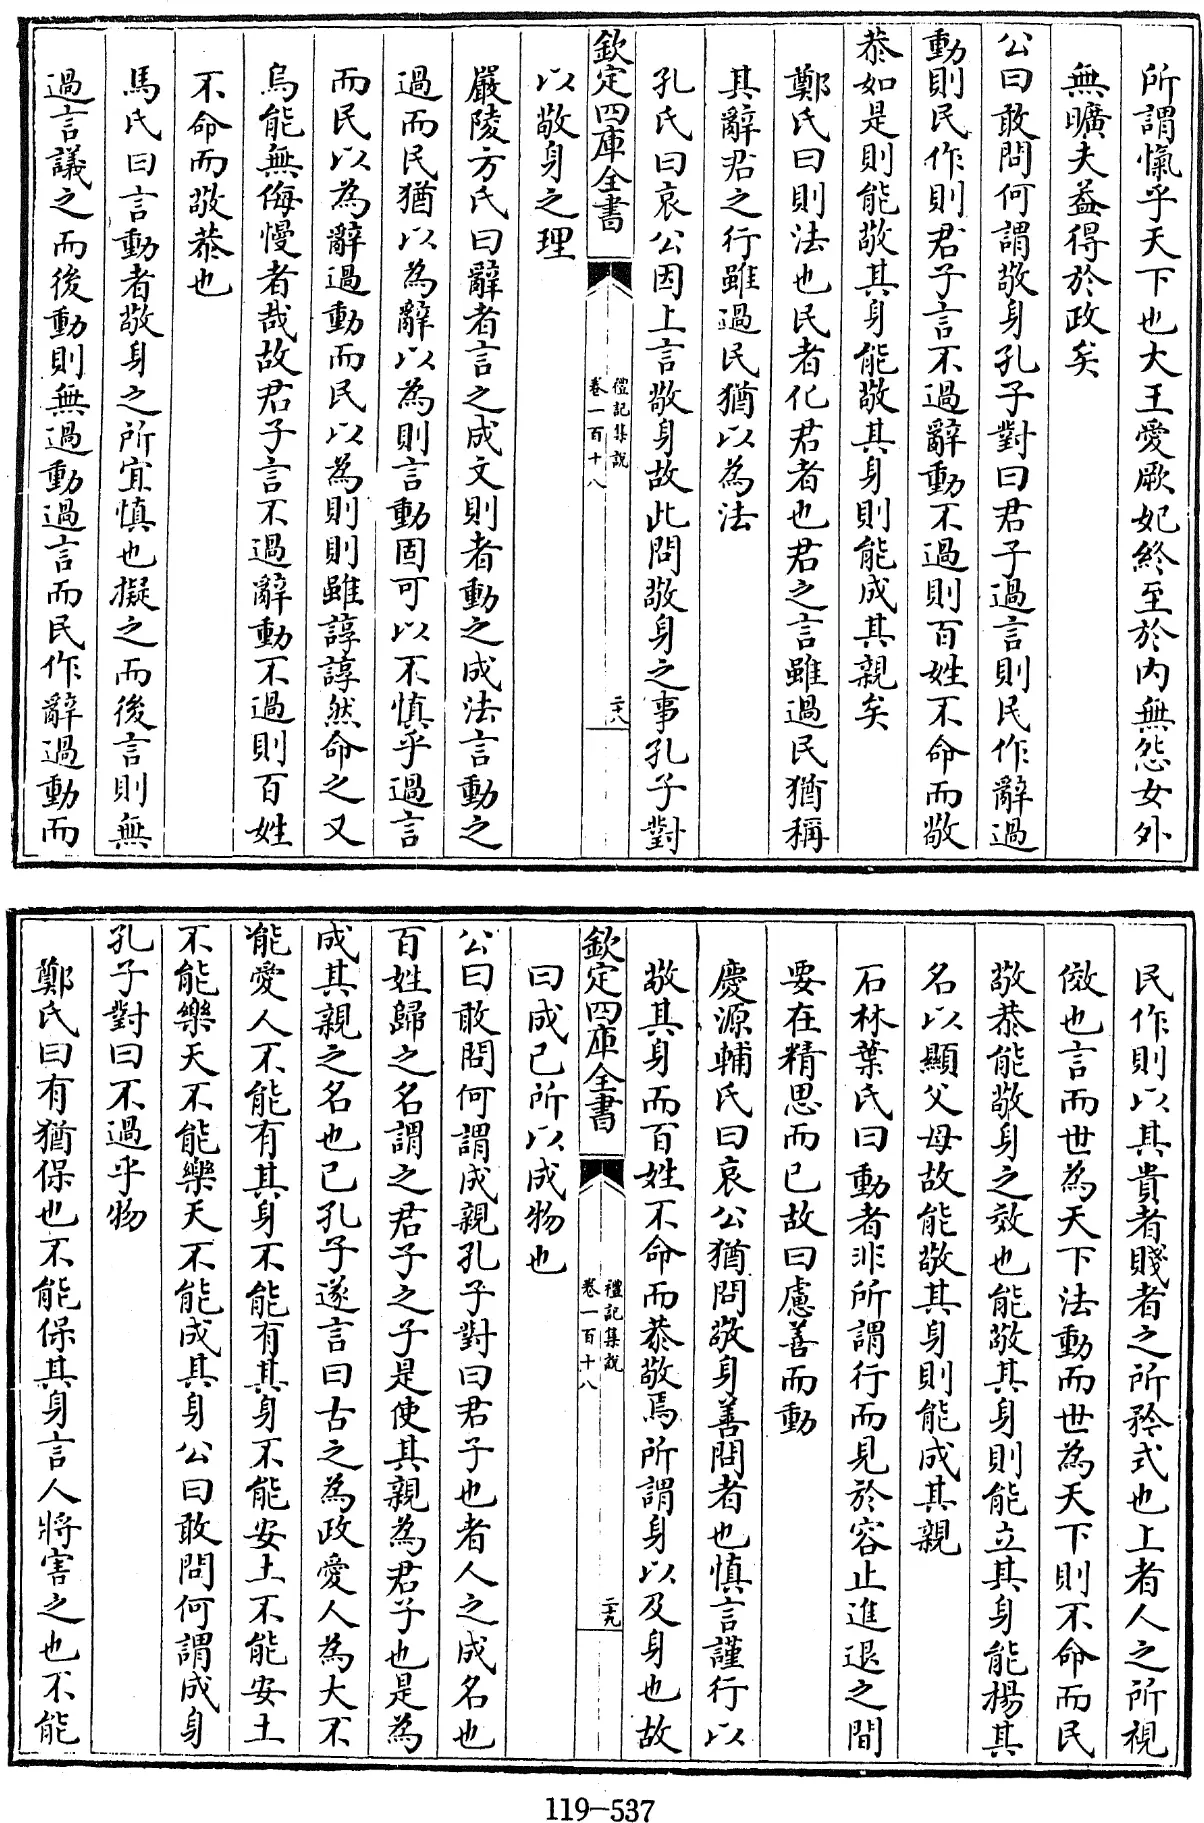 所謂愾乎天下也大王愛厥妃終至於内無怨女外
無曠夫葢得於政矣
公曰敢問何謂敬身孔子對曰君子過言則民作辭過
動則民作則君子言不過辭動不過則百姓不命而敬
恭如是則能敬其身能敬其身則能成其親矣
鄭氏曰則法也民者化君者也君之言雖過民猶稱
其辭君之行雖過民猶以為法
孔氏曰哀公因上言敬身故此問敬身之事孔子對
欽定四庫全書
禮記集說
卷一百十八
二十八
以敬身之理
嚴陵方氏曰辭者言之成文則者動之成法言動之
過而民猶以為辭以為則言動固可以不慎乎過言
而民以為辭過動而民以為則則雖諄諄然命之又
烏能無侮慢者哉故君子言不過辭動不過則百姓
不命而敬恭也
馬氏曰言動者敬身之所宜慎也擬之而後言則無
過言議之而後動則無過動過言而民作辭過動而
民作則以其貴者賤者之所矜式也上者人之所視
傚也言而世為天下法動而世為天下則不命而民
敬恭能敬身之效也能敬其身則能立其身能揚其
名以顯父母故能敬其身則能成其親
石林葉氏曰動者非所謂行而見於容止進退之間
要在精思而已故曰慮善而動
慶源輔氏曰哀公猶問敬身善問者也慎言謹行以
敬其身而百姓不命而恭敬焉所謂身以及身也故
欽定四庫全書
禮記集說
卷一百十八
二十九
曰成己所以成物也
公曰敢問何謂成親孔子對曰君子也者人之成名也
百姓歸之名謂之君子之子是使其親為君子也是為
成其親之名也已孔子遂言曰古之為政愛人為大不
能愛人不能有其身不能有其身不能安土不能安土
不能樂天不能樂天不能成其身公曰敢問何謂成身
孔子對曰不過乎物
鄭氏曰有猶保也不能保其身言人將害之也不能
119-537